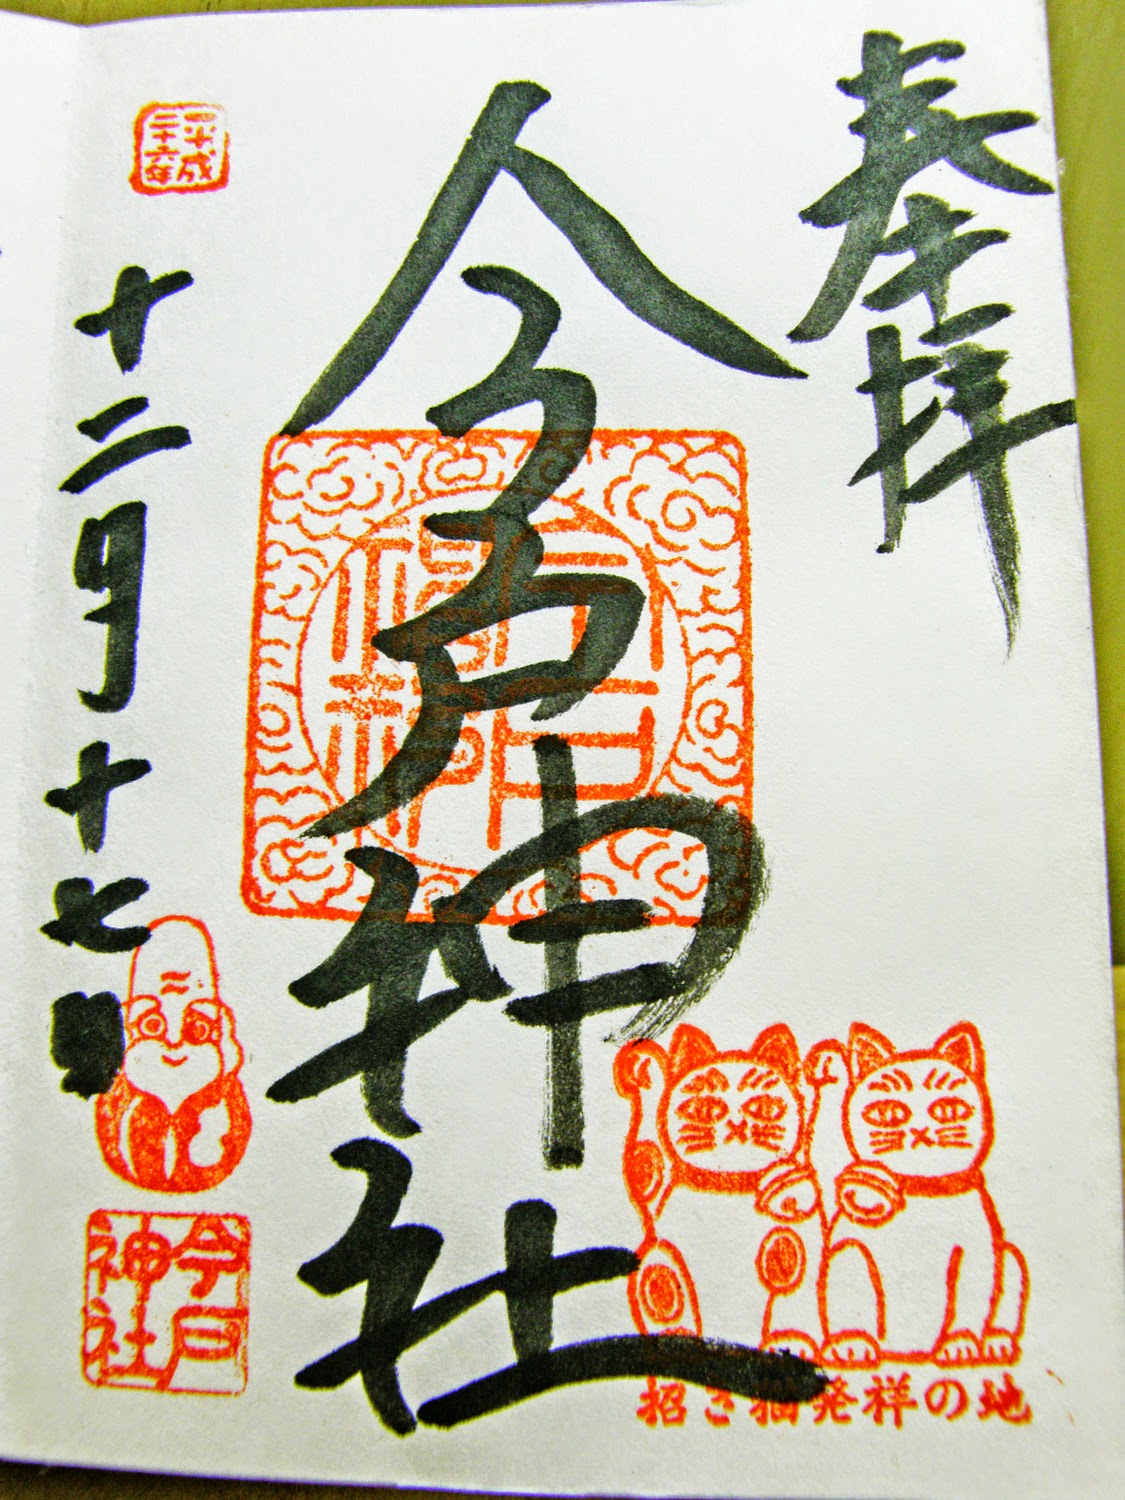 奉拝
今戸神社
平成
二十六年
十二月十七日
今戸
神社
招き猫発祥の地